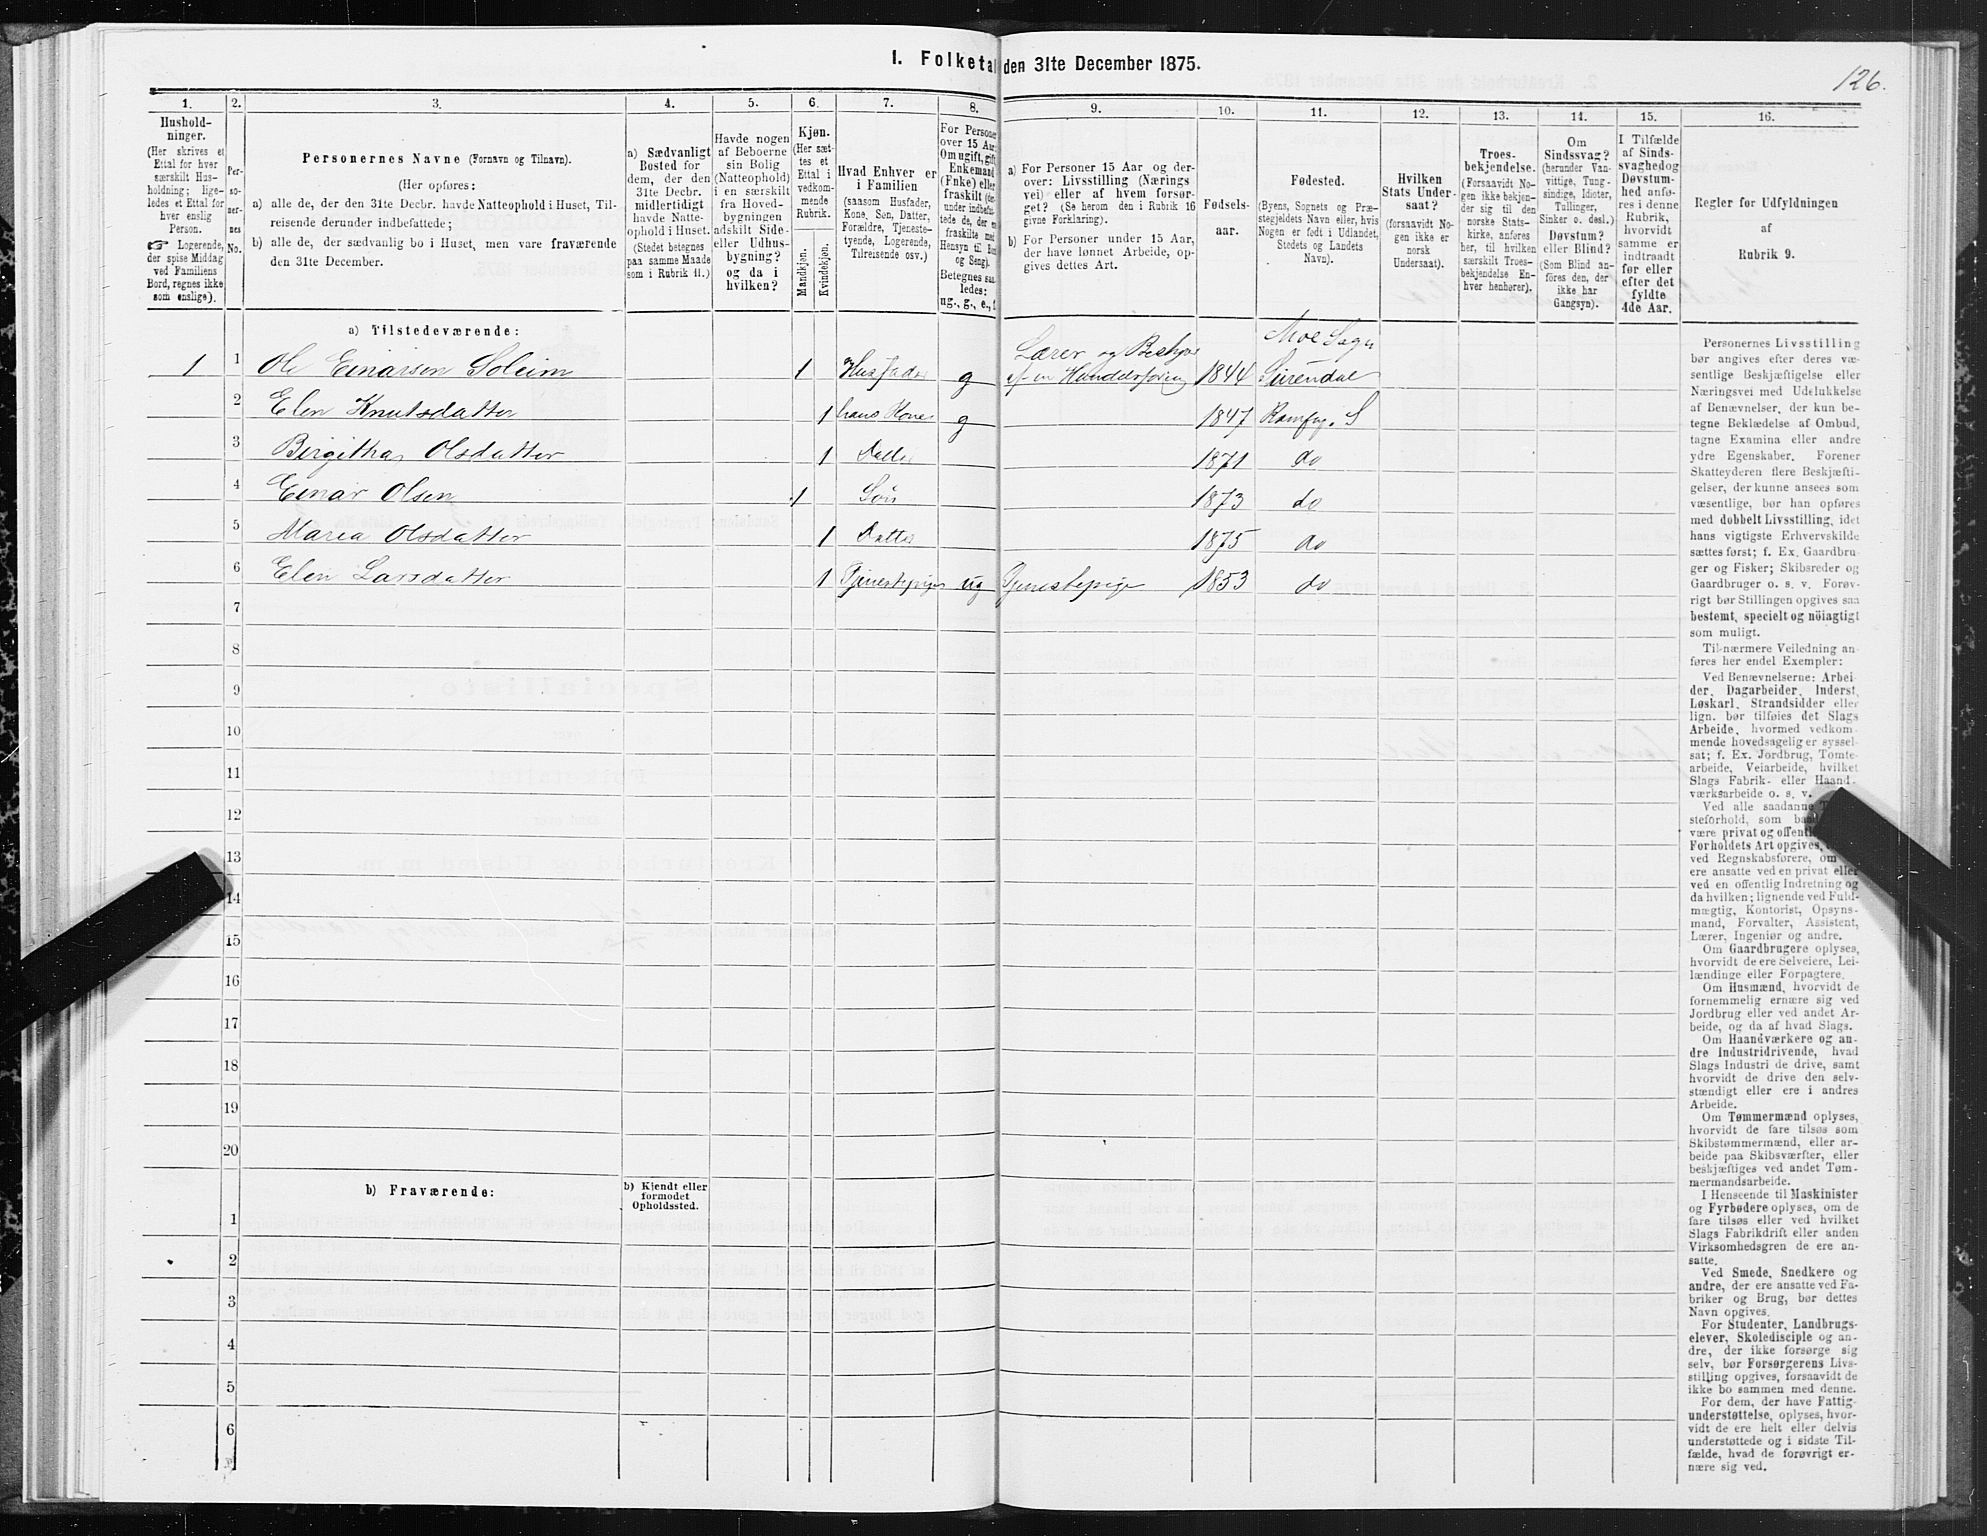 1. Folketal den 31te December 1875.
126.
1. 2. 3. 4. 5. 6. 7. 8. 9. 10. 11. 12. 13. 14. 15. 16.
Hushold-
ninger.
(Her skrives et
Ettal for hver
særskilt Hus-
holdning; lige-
ledes et Ettal for
hver enslig
Person.
☞ Logerende,
der spise Middag
ved Familiens
Bord, regnes ikke
som enslige).
Per-
so-
ner-
nes
No.
Personernes Navne (Fornavn og Tilnavn).
(Her opføres:
a) alle de, der den 31te Decbr. havde Natteophold i Huset, Til-
reisende derunder indbefattede;
b) alle de, der sædvanlig bo i Huset, men vare fraværende
den 31te December.
a) Sædvanligt
Bosted for
dem, der den
31te Decbr.
midlertidigt
havde Natte-
ophold i Huset.
(Stedet betegnes
paa samme Maade
som i Rubrik 11.)
Havde nogen
af Beboerne
sin Bolig
(Natteophold)
i en særskilt
fra Hoved-
bygningen
adskilt Side-
eller Udhus-
bygning?
og da i
hvilken?
Kjøn.
(Her sæt-
tes et
Ettal i
vedkom-
mende
Rubrik.
Mandkjøn.
Kvindekjøn.
Hvad Enhver er
i Familien
(saasom Husfader,
Kone, Søn, Datter,
Forældre, Tjeneste-
tyende, Logerende,
Tilreisende osv.)
For Personer
over 15 Aar:
Om ugift, gift,
Enkemand
(Enke) eller
fraskilt
Hensyn til Bord
og Seng).
Betegnes saa-
ledes:
ug., g., e., f.
a) For Personer 15 Aar og der-
over: Livsstilling (Nærings
vei) eller af hvem forsør-
get? (Se herom den i Rubrik 16
givne Forklaring).
b) For Personer under 15 Aar,
der have lønnet Arbeide, op-
gives dettes Art.
Fødsels-
aar.
Fødested.
(Byens, Sognets og Præ-
stegjeldets Navn eller, hvis
Nogen er født i Udlandet,
Stedets og Landets
Navn).
Hvilken
Stats Under-
saat?
(forsaavidt No-
gen ikke er
norsk
Undersaat).
Troes-
bekjendelse.
(Forsaavidt No-
gen ikke bekjen-
der sig til den
norske Stats-
kirke, anføres
her, til hvilken
særskilt Troes-
bekjendelse En-
hver henhører).
Om
Sindssvag?
(herunder Van-
vittige, Tung-
sindige, Idioter,
Tullinger,
Sinker o. desl.)
Døvstum?
eller Blind?
(Som Blind an-
føres den, der
ikke har
Gangsyn).
I Tilfælde
af Sinds-
svaghed og
Døvstum-
hed anfø-
res i denne
Rubrik,
hvorvidt
samme er
indtraadt
før eller
efter det
fyldte
4de Aar.
Regler for Udfyldningen
af
Rubrik 9.
a) Tilstedeværende:
1 1 Ole Einarsen Soleim 1 Husfader g Lærer og Bestyrer af en Handelsforening 1844 Moe Sogn Surendal
2 Elen Knutsdatter 1 hans Kone g 1847 S
3 Birgitha Olsdatter 1 Datter 1871 do
4 Einar Olsen 1 Søn 1873 do
5 Maria Olsdatter 1 Datter 1875 do
6 Elen Larsdatter 1 Tjenestepige ug Tjenestepige 1853 do
7
8
9
10
11
12
13
14
15
16
17
18
19
20
b) Fraværende:
b) Kjendt eller
formodet
Opholdssted.
1
2
3
4
5
6
Personernes Livsstilling
bør angives efter deres væ-
sentlige Beskjæftigelse eller
Næringsvei med Udelukkelse
af Benævnelser, der kun be-
tegne Beklædelse af Ombud,
tagne Examina eller andre
ydre Egenskaber. Forener
Skatteyderen flere Beskjæfti-
gelser, der kunne ansees som
væsentlige, bør han opføres
med dobbelt Livsstilling, idet
hans vigtigste Erhvervskilde
sættes først; f. Ex. Gaardbru-
ger og Fisker; Skibsreder og
Gaardbruger o. s. v. Forøv-
rigt bør Stillingen opgives saa
bestemt, specielt og nöiagtigt
som muligt.
Til nærmere Veiledning an-
føres her endel Exempler:
Ved Benævnelserne: Arbei-
der, Dagarbeider, Inderst,
Løskarl, Strandsidder eller
lign. bør tilføies det Slags
Arbeide, hvormed vedkom-
mende hovedsagelig er syssel-
sat; f. Ex. Jordbrug, Tomte-
arbeide, Veiarbeide, hvilket
Slags Fabrik- eller Haand-
værksarbeide o. s. v.
Ved alle saadanne
steforhold, som
være privat og
Forholdets Art opgives,
ved Regnskabsførere, om
ere ansatte ved en privat eller
ved en offentlig Indretning og
da hvilken; lignende ved Fuld-
mægtig, Kontorist, Opsyns-
mand, Forvalter, Assistent,
Lærer, Ingeniør og andre.
Om Gaardbrugere oplyses,
hvorvidt de ere Selveiere, Lei-
lændinge eller Forpagtere.
Om Husmænd, hvorvidt de
fornemmelig ernære sig ved
Jordbrug eller ved andet Ar-
beide, og da af hvad Slags.
Om Haandværkere og an-
dre Industridrivende, hvad
Slags Industri de drive, samt
hvorvidt de drive den selv-
stændigt eller ere i andres
Arbeide.
Om Tømmermænd oplyses,
hvorvidt de fare tilsøs som
Skibstømmermænd, eller ar-
beide paa Skibsværfter, eller
beskjæftiges ved andet Tøm-
mermandsarbeide.
I Henseende til Maskinister
og Fyrbødere oplyses, om de
fare tilsøs eller ved hvilket
Slags Fabrikdrift eller anden
Virksomhedsgren de ere an-
satte.
Ved Smede, Snedkere og
andre, der ere ansatte ved Fa-
briker og Brug, bør dettes
Navn opgives.
For Studenter, Landbrugs-
elever, Skoledisciple og an-
dre, der ikke forsørge sig
selv, bør Forsørgerens Livs-
stilling opgives, forsaavidt de
ikke bo sammen med denne.
For dem, der have Fattig-
understøttelse, oplyses, hvor-
vidt de ere helt eller delvis
understøttede og i sidste Til-
fælde, hvad de forøvrigt er-
nære sig ved.